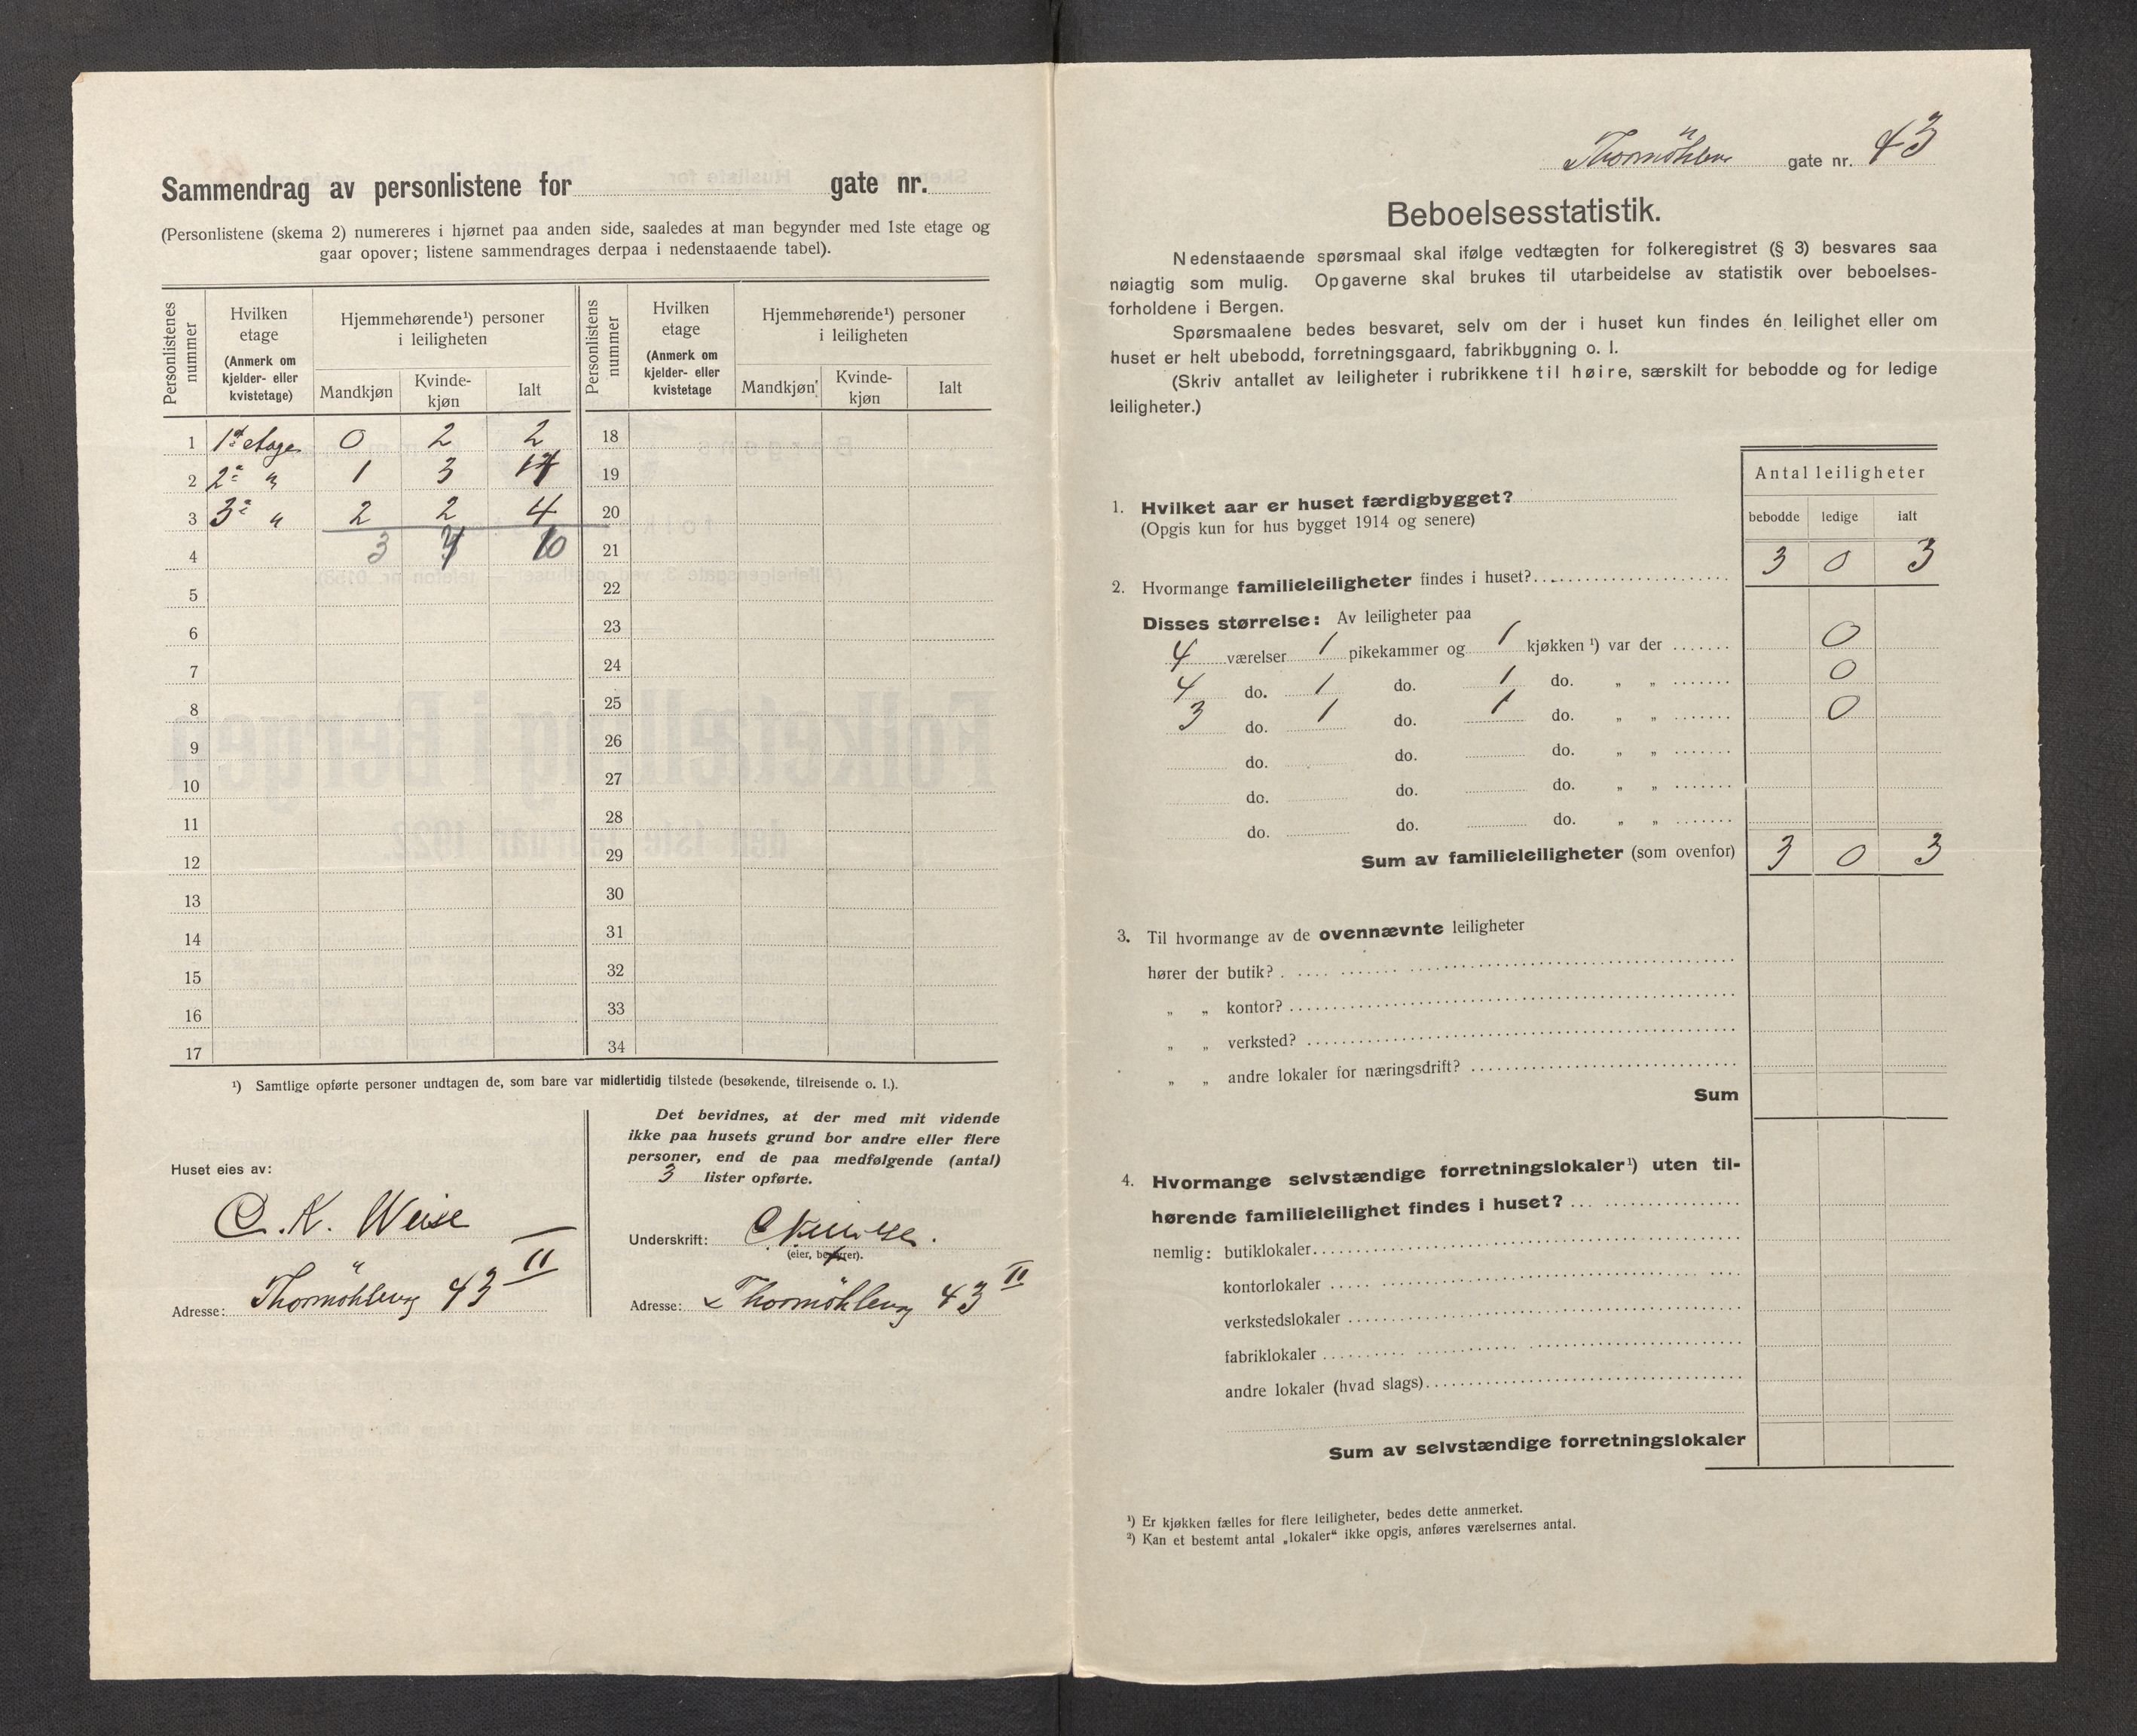 Sammendrag av personlistene for gate nr.
(Personlistene (skema 2) numereres i hjørnet paa anden side, saaledes at man begynder med 1ste etage og
gaar opover; listene sammendrages derpaa i nedenstaaende tabel).
Personlistenes nummer
Hvilken etage (Anmerk om kjelder- eller kvistetage)
Hjemmehørende¹) personer i leiligheten
Mandkjøn Kvindekjøn Ialt
Personlistens nummer
Hvilken etage (Anmerk om kjelder- eller kvistetage
Hjemmehørende¹) personer i leiligheten
Mandkjøn Kvinde-kjøn Ialt
1 1ste etage 0 2 2 18
2 2 " 1 3 4 19
3 3 " 2 2 4 20
4 3 7 10 21
5 22
6 23
7 24
8 25
9 26
10 27
11 28
12 29
13 30
14 31
15 32
16 33
17 34
¹) Samtlige opførte personer undtagen de, som bare var midlertidig tilstede (besøkende, tilreisende o. l.).
Huset eies av:
C. K. Weise
Adresse: Thormöhlensg 43 II
Det bevidnes, at der med mit vidende
ikke paa husets grund bor andre eller flere
personer, end de paa medfølgende (antal)
3 lister opførte.
Underskrift: C K Weise.
(eier, bestyrer).
Adresse: Thormöhlensg 43 II
Thormöhlens gate nr. 43
Beboelsesstatistik.
Nedenstaaende spørsmaal skal ifølge vedtægten for folkeregistret (§ 3) besvares saa
nøiagtig som mulig. Opgaverne skal brukes til utarbeidelse av statistik over beboelses-
forholdene i Bergen.
Spørsmaalene bedes besvaret, selv om der i huset kun findes én leilighet eller om
huset er helt ubebodd, forretningsgaard, fabrikbygning o. l.
(Skriv antallet av leiligheter i rubrikkene til høire, særskilt for bebodde og for ledige
leiligheter.)
Antal leiligheter
bebodde ledige ialt
1. Hvilket aar er huset færdigbygget?
(Opgis kun for hus bygget 1914 og senere)
2. Hvormange familieleiligheter findes i huset? 3 0 3
Disses størrelse: Av leiligheter paa
4 værelser 1 pikekammer og 1 kjøkken ¹) var der 0
4 do. 1 do. 1 do. „ „ 0
3 do. 1 do. 1 do. „ „ 0
do. do. do. „ „
do. do. do. „ „
do. do. do. „ „
Sum av familieleiligheter (som ovenfor) 3 0 3
3. Til hvormange av de ovennævnte leiligheter
hører der butik?
„ „ kontor?
„ „ verksted?
„ „ andre lokaler for næringsdrift?
Sum
4. Hvormange selvstændige forretningslokaler¹) uten til-
hørende familieleilighet findes i huset?
nemlig: butiklokaler
kontorlokaler
verkstedslokaler
fabriklokaler
andre lokaler (hvad slags)
Sum av selvstændige forretningslokaler
¹) Er kjøkken fælles for flere leiligheter, bedes dette anmerket.
²) Kan et bestemt antal „lokaler“ ikke opgis, anføres værelsernes antal.